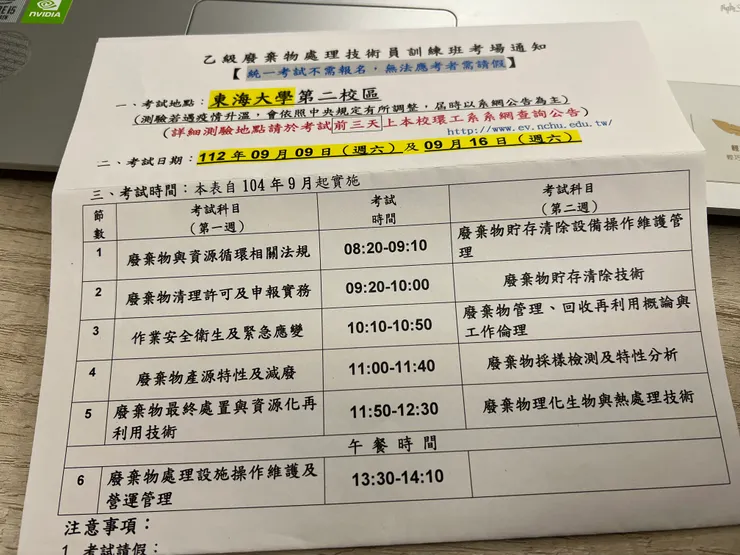 NVIDIA
乙級廢棄物處理技術員訓練班考場通知
【統一考試不需報名，無法應考者需請假】
一、考試地點：東海大學第二校區
(測驗若遇疫情升溫，會依照中央規定有所調整，屆時以系網公告為主)
(詳細測驗地點請於考試前三天上本校環工系系網查詢公告)
http://www.ev.nchu.edu.tw/
二、考試日期：112 年 09 月 09 日 (週六) 及 09 月 16 日 (週六)
三、考試時間：本表自 104 年 9 月起實施
節數 考試科目(第一週) 考試時間 考試科目(第二週)
1 廢棄物與資源循環相關法規 08:20-09:10 廢棄物貯存清除設備操作維護管理
2 廢棄物清理許可及申報實務 09:20-10:00 廢棄物貯存清除技術
3 作業安全衛生及緊急應變 10:10-10:50 廢棄物管理、回收再利用概論與工作倫理
4 廢棄物產源特性及減廢 11:00-11:40 廢棄物採樣檢測及特性分析
5 廢棄物最終處置與資源化再利用技術 11:50-12:30 廢棄物理化生物與熱處理技術
午餐時間
6 廢棄物處理設施操作維護及營運管理 13:30-14:10
注意事項：
1. 考試請假：